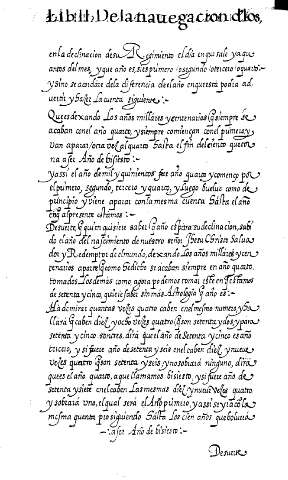 Lib. II. De la navegacion de los,
en la declinacion de su Regimiento el dia en que sale ya qua
antos del mes, y que año es, si es primero o segundo o tercero o quarto
y sino se acordare de la diferencia de el año en que esta podra ad
vertir y saber la cuenta siguiente.
Que dexando los años millares y centenarios que siempre se
acaban en el año quarto, y siempre comiençan en el primero y
van a parar otra vez al quarto hasta el fin del ciento que ve
na a ser Año de bisiesto.
y assi el año de mil y quinientos fue año quarto y començo por
el primero, segundo, tercero y quarto, y luego buelve como de
principio y viene a parar con la mesma cuenta hasta el año
en que al presente estamos.
De suerte que quien quisiere saber que año es para su declinacion, sabi
do el año del nascimiento de nuestro señor Iesu Christo Salua
dor y Redemptor del mundo, dexando los años millares y cen
tenarios a parte que como he dicho se acaban siempre en año quarto,
tomados los demas como agora podemos tomar este en que estamos
de setenta y cinco, quiere saber sin mas Astrologia que año es.
Ha de mirar quantas vezes quatro caben en el mesmo numero y ha
llará que caben diez y ocho vezes quatro que son setenta y dos y para
setenta y cinco son tres, dirá que el año de setenta y cinco es año
tercero, y si fuere año de setenta y seis en el caben diez y nueve
vezes quatro que son setenta y seis y no sobrará ninguno, dirá
que es el año quarto, a que llamamos bisiesto, y si fuere año de
setenta y siete en el caben las mesmas diez y nueve vezes quatro
y sobrará uno, el qual será el Año primero, y assi se yra con la
mesma cuenta prosiguiendo hasta los cien años que bolverá
a ser Año de bisiesto.
De suerte